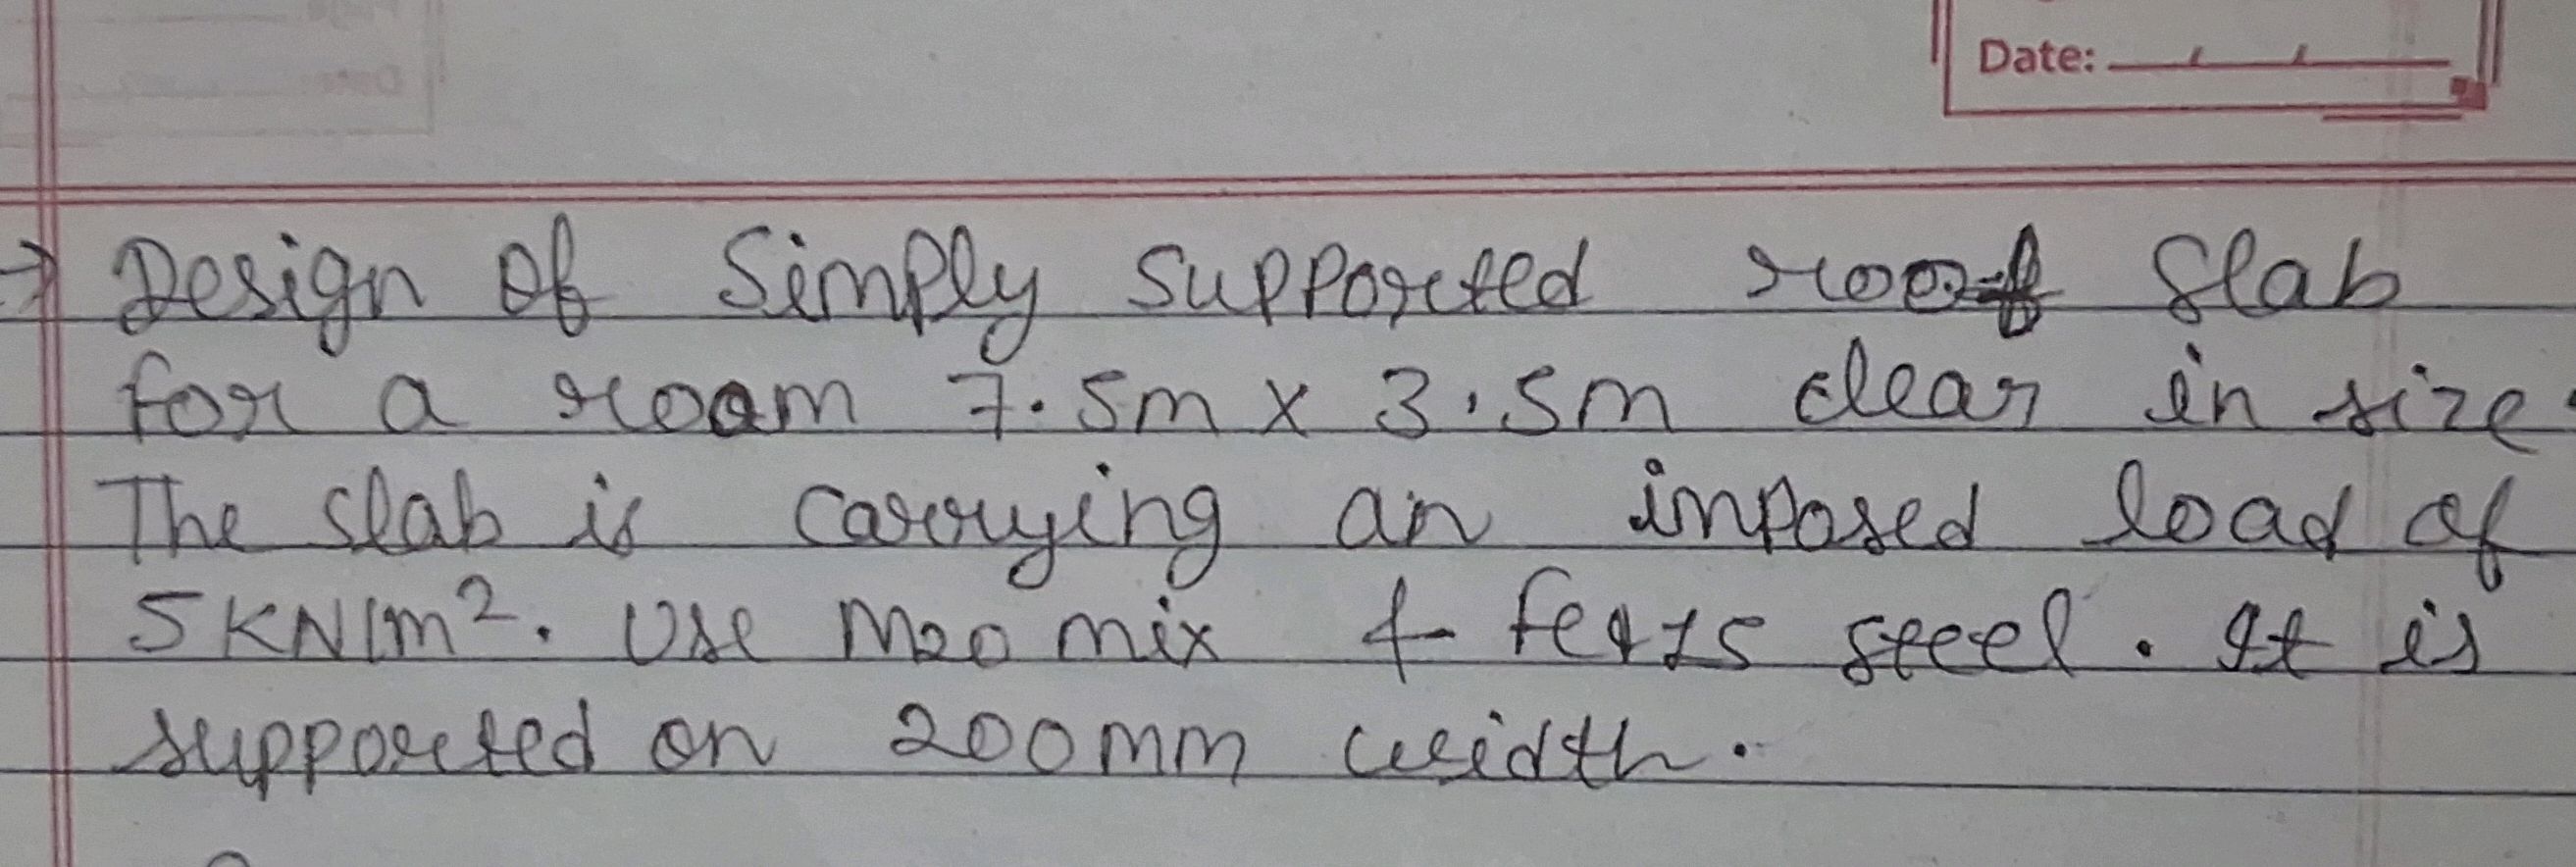 Date:
→ Design of Simply supported roof slab
for a room 7.5m x 3.5m clear in size.
The slab is carrying an imposed load of
5KN/m². Use M20 mix & fe415 steel. It is
supported on 200mm width.